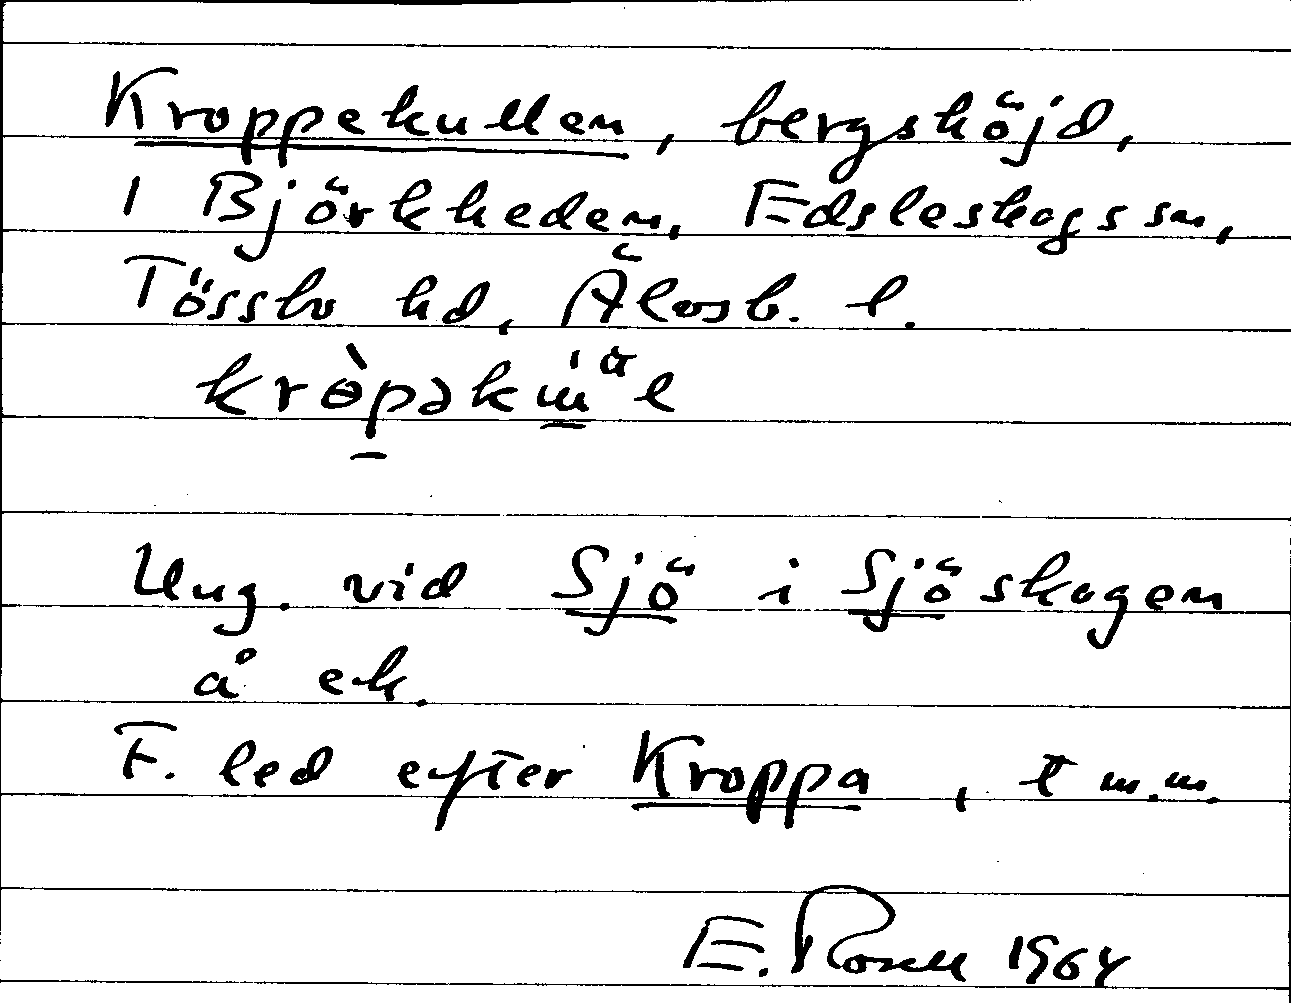 Kroppekullen, bergshöjd,
i Björkheden, Edsleskogs sn,
Tössbo hd, Älvsb. l.
Ung. vid Sjö i Sjöskogen
å ek.
F. led efter Kroppa, t m.m.
E. Rosell 1964